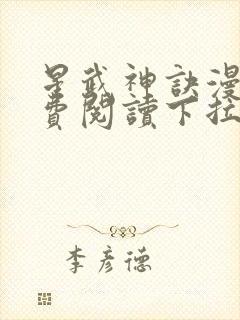 星武神訣漫
費閱讀下拉
李彦德